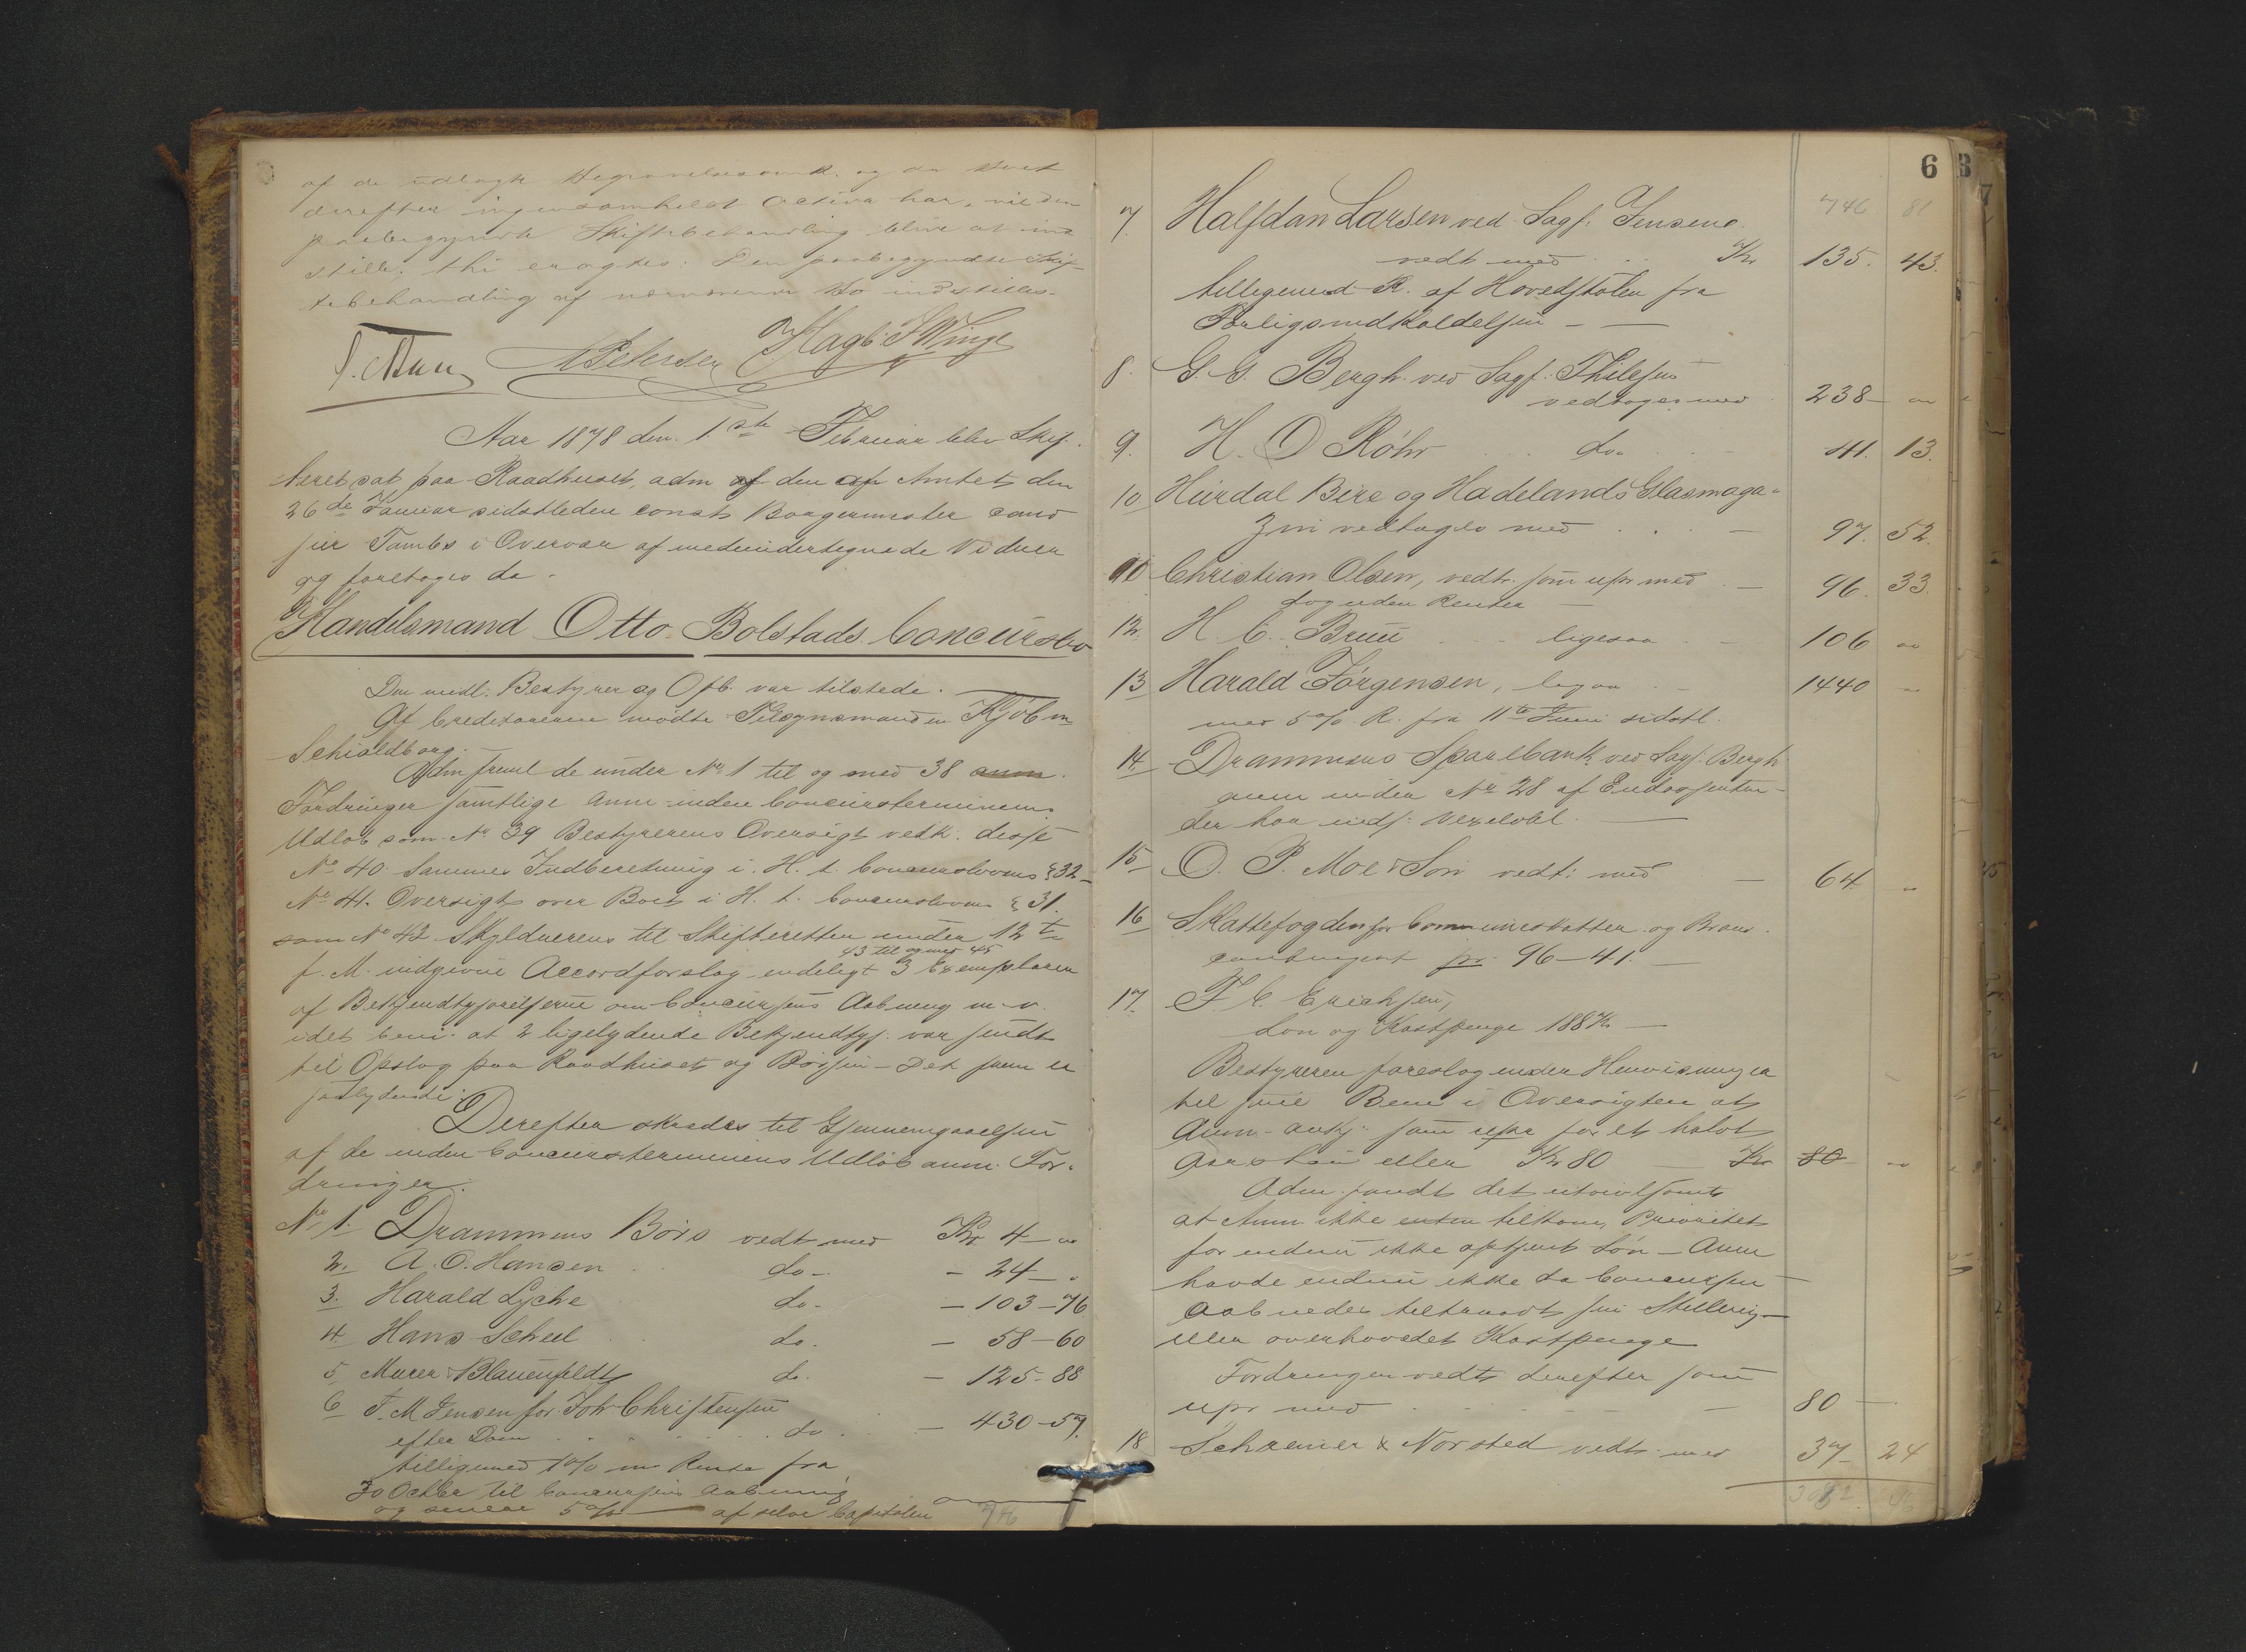 af de udlagte Begravelsesomk. og da Boet
derefter ingensomhelst Activa har, vil den
paabegyndte Skiftebehandling blive at ind
stille, thi eragtes: Den paabegyndte Skif-
tebehandling af nærværende Bo indstilles.
A Petersen Hagb. Winge
Aar 1878 den 1ste Februar blev Skif-
teret sat paa Raadhuset, adm af den af Amtet den
26de Januar sidstleden const Borgermester cand
jur Tambs i Overvær af medundertegnede Vidner
og foretoges da
Handelsmand Otto Bolstads Concursbo
Den midl: Bestyrer og Opb. var tilstede.
Af Creditorerne mødte Tilsynsmanden Kjøbm
Schioldborg.
Adm freml de under No 1 til og med 38 anm.
Fordringer samtlige anm inden Concursterminens
Udløb som No 39 Bestyrerens Oversigt vedk. disse
No 40. Sammes Indberetning i. H. t. Concurslovens § 32
No 41. Oversigt over Boet i H. t. Concurslovens § 31.
som No 42 Skyldnerens til Skifteretten under 12te
43 til og med 45
f. M. indgivne Accordforslag endeligt 3 Exemplarer
af Bekjendtgjørelserne om Concursens Aabning m. v.
idet bem. at 2 ligelydende Bekjendtgj. var sendt
til Opslag paa Raadhuset og Børsen - Det frem er
saalydende:
Derefter skredes til Gjennemgaaelsen
af de inden Concursterminens Udløb anm. For-
dringer.
No 1. Drammens Børs vedt med Kr 4 - "
2. A. O. Hansen do - 24 - "
3. Harald Lyche do - 103 - 76
4 Hans Scheel do. - 58 - 60
5 Murer Blauenfeldt do - 125 - 88
6 F. M Jensen for Joh Christensen
efter Dom do - 430 - 57.
tilligemed 1 % m Rente fra
30 Octbr til Concursens Aabning
og senere 5 % af selve Capitalen 746
6
746 81
7. Halfdan Larsen ved Sagf. Jensen
vedt med Kr 135. 43.
tilligemed R. af Hovedstolen fra
Forligsindkaldelsen
8. G. G. Bergh ved Sagf. Thilesen
vedtoges med 238 - "
9. H. O Røhr do 41. 13.
10 Hurdal Bire og Hadelands Glasmaga-
zin vedtoges med 97. 52.
Christian Olsen, vedt. som upr med 96. 33.
dog uden Renter
12. H. C. Bruu ligesaa 106 "
13 Harald Jørgensen, ligsaa 1440 "
med 5 % R. fra 11te Juni sidstl.
14. Drammens Sparebank ved Sagf. Bergh
anm under No 28 af Endossenten
der har indf. Vexelobl.
15 O. P. Moe & Søn vedt: med 64 "
16 Skattefogden for Communeskatter og Brand-
contingent pr. 96 - 41.
17. F. C. Erichsen,
Løn og Kostpenge 188 Kr
Bestyreren foreslog under Henvisninger
til sine Bem i Oversigten at
Anm. ankj. som upr for et halvt
Aars Løn eller Kr 80 Kr 80 "
Adm. fandt det utvivlsomt
at Anm ikke enten tilkom Prioritet
for endnu ikke optjent Løn - Anm
havde endnu ikke da Concursen
aabnedes tiltraadt sin Stilling -
eller overhovedet Kostpenge
Fordringen vedt derefter som
upr med 80 -
18 Schreiner & Norsted vedt med 37 - 24